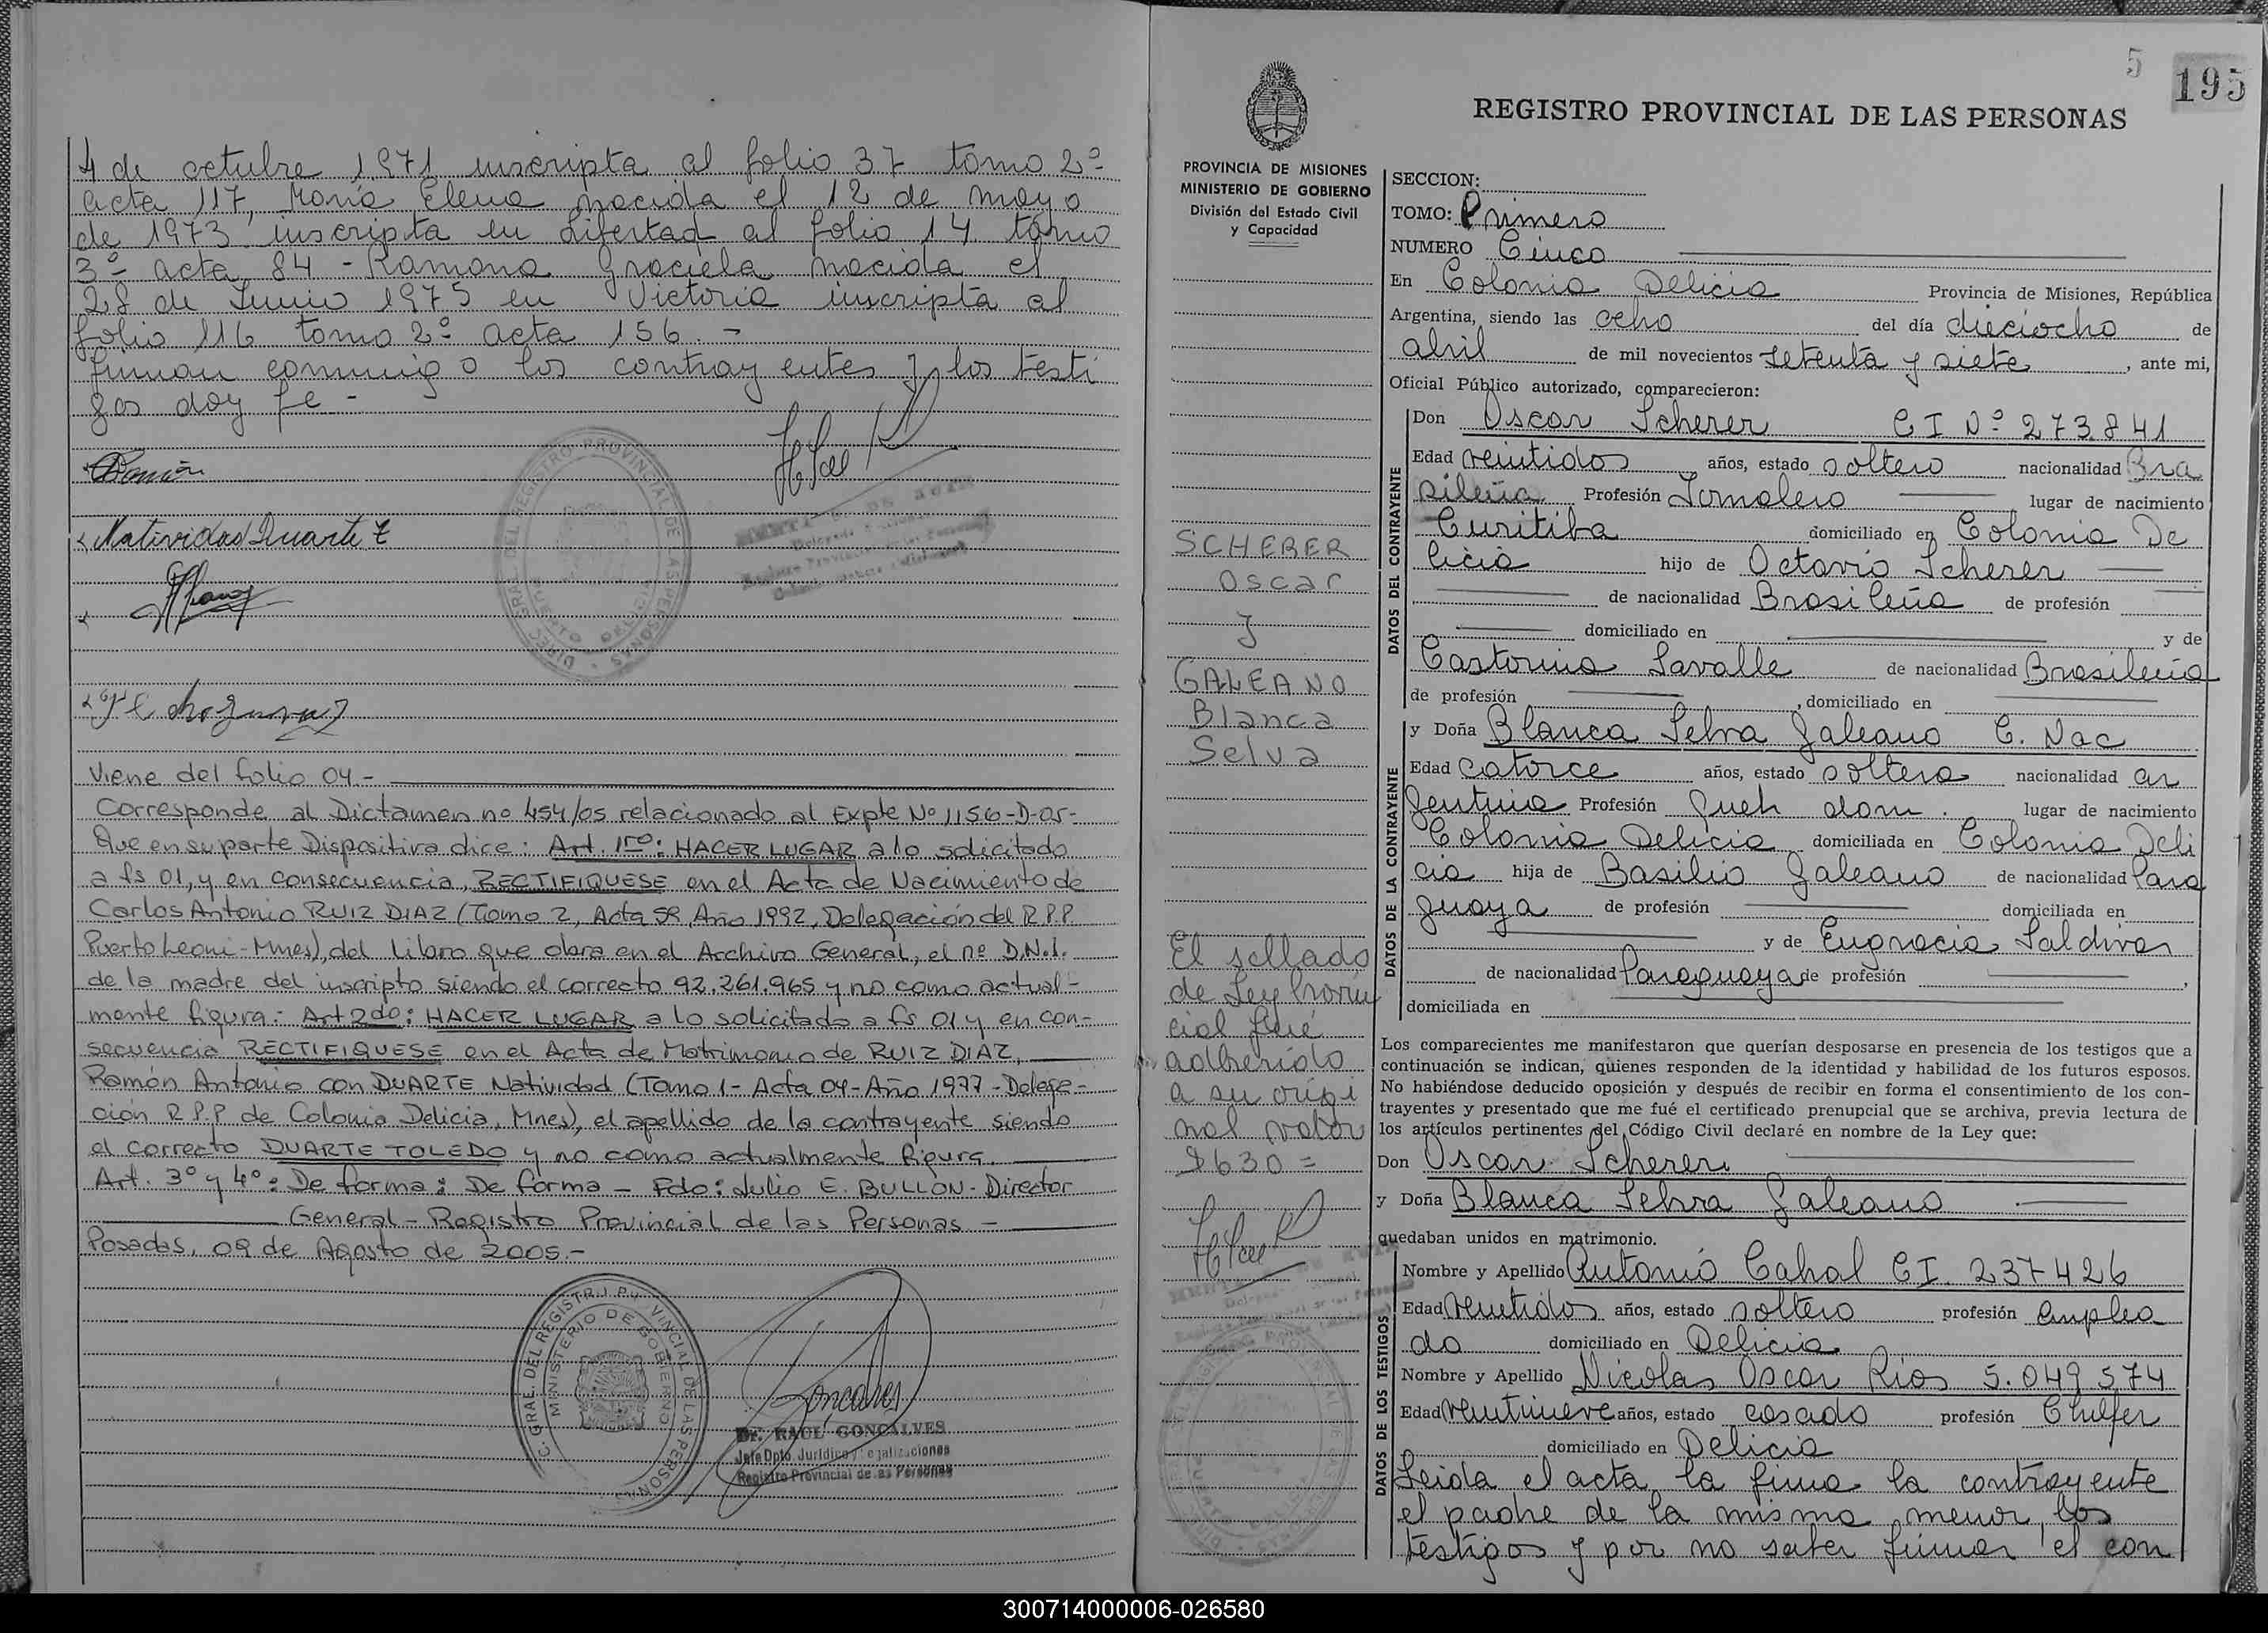 4 de octubre 1.971 inscripta al folio 37 tomo 2º
acta 117, María Elena nacida el 12 de mayo
de 1973 inscripta en Libertad al folio 14 tomo
3º acta 84 - Ramona Graciela nacida el
28 de Junio 1975 en Victoria inscripta al
folio 116 tomo 2º acta 156. -
firman conmigo los contrayentes y los testi
gos doy fe -
Natividad Duarte T
Viene del folio 04.-
Corresponde al Dictamen no 454/05 relacionado al Expte Nº 1156-D-05-
Que en su parte Dispositiva dice: Art. 1ro: HACER LUGAR a lo solicitado
a fs 01, y en consecuencia, RECTIFIQUESE en el Acta de Nacimiento de
Carlos Antonio RUIZ DIAZ (Tomo 2, Acta 59, Año 1992, Delegación del R.P.P.
Puerto Leoni-Mnes), del libro que obra en el Archivo General, el nº D.N.I.
de la madre del inscripto siendo el correcto 92.261.965 y no como actual-
mente figura.- Art 2do: HACER LUGAR a lo solicitado a fs 01 y en con-
secuencia RECTIFIQUESE en el Acta de Matrimonio de RUIZ DIAZ,
Ramón Antonio con DUARTE Natividad (Tomo 1- Acta 04-Año 1977-Delega-
ción R.P.P. de Colonia Delicia, Mnes), el apellido de la contrayente siendo
el correcto DUARTE TOLEDO y no como actualmente figura.
Art. 3º y 4º: De forma: De forma - Fdo: Julio E. BULLON-Director
General - Registro Provincial de las Personas -
Posadas, 09 de Agosto de 2005.-
Dr. RAUL GONCALVES
Jefe Dpto. Jurídico
Registro Provincial de las Personas
5
195
REGISTRO PROVINCIAL DE LAS PERSONAS
PROVINCIA DE MISIONES
MINISTERIO DE GOBIERNO
División del Estado Civil
y Capacidad
SCHERER
Oscar
y
GALEANO
Blanca
Selva
El sellado
de Ley Provin
cial fué
adherido
a su origi
nal valor
$630=
SECCION:
TOMO: Primero
NUMERO Cinco
En Colonia Delicia Provincia de Misiones, República
Argentina, siendo las ocho del día dieciocho de
abril de mil novecientos setenta y siete, ante mi,
Oficial Público autorizado, comparecieron:
DATOS DEL CONTRAYENTE
Don Oscar Scherer C I Nº 273.841
Edad veintidos años, estado soltero nacionalidad Bra
sileña Profesión Jornalero lugar de nacimiento
Curitiba domiciliado en Colonia De
licia hijo de Octavio Scherer
de nacionalidad Brasileña de profesión
domiciliado en y de
Castorina Lavalle de nacionalidad Brasileña
de profesión , domiciliado en
DATOS DE LA CONTRAYENTE
y Doña Blanca Selva Galeano C. Nac
Edad catorce años, estado soltera nacionalidad ar
gentina Profesión Queh dom. lugar de nacimiento
Colonia Delicia domiciliada en Colonia Deli
cia hija de Basilio Galeano de nacionalidad Para
guaya de profesión domiciliada en
y de Eugracia Saldivar
de nacionalidad Paraguaya de profesión ,
domiciliada en
Los comparecientes me manifestaron que querían desposarse en presencia de los testigos que a
continuación se indican, quienes responden de la identidad y habilidad de los futuros esposos.
No habiéndose deducido oposición y después de recibir en forma el consentimiento de los con-
trayentes y presentado que me fué el certificado prenupcial que se archiva, previa lectura de
los artículos pertinentes del Código Civil declaré en nombre de la Ley que:
Don Oscar Scherer
y Doña Blanca Selva Galeano
quedaban unidos en matrimonio.
DATOS DE LOS TESTIGOS
Nombre y Apellido Antonio Cabral CI. 237426
Edad veintidos años, estado soltero profesión emplea
do domiciliado en Delicia
Nombre y Apellido Nicolas Oscar Rios 5.049.574
Edad veintinueve años, estado casado profesión Chofer
domiciliado en Delicia
Leida el acta la firma la contrayente
el padre de la misma menor, los
testigos y por no saber firmar el con
300714000006-026580